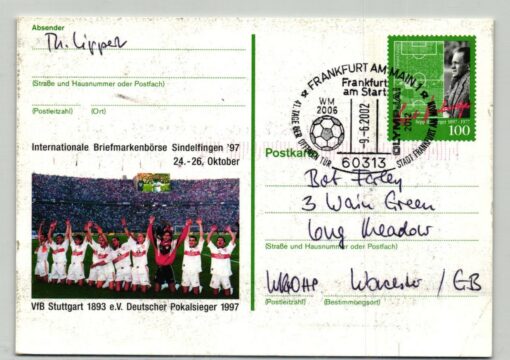 Absender
Th. Lippert
(Straße und Hausnummer oder Postfach)
(Postleitzahl) (Ort)
Internationale Briefmarkenbörse Sindelfingen '97
24.-26. Oktober
VfB Stuttgart 1893 e.V. Deutscher Pokalsieger 1997
FRANKFURT AM MAIN 1
Frankfurt
am Start:
WM
2006
-9.-6.2002
OLYMPIA
2012
60313
STADT FRANKFURT
100
Postkarte
3 Wain Green
Long Meadow
(Straße und Hausnummer oder Postfach)
Worcester / GB
(Postleitzahl) (Bestimmungsort)